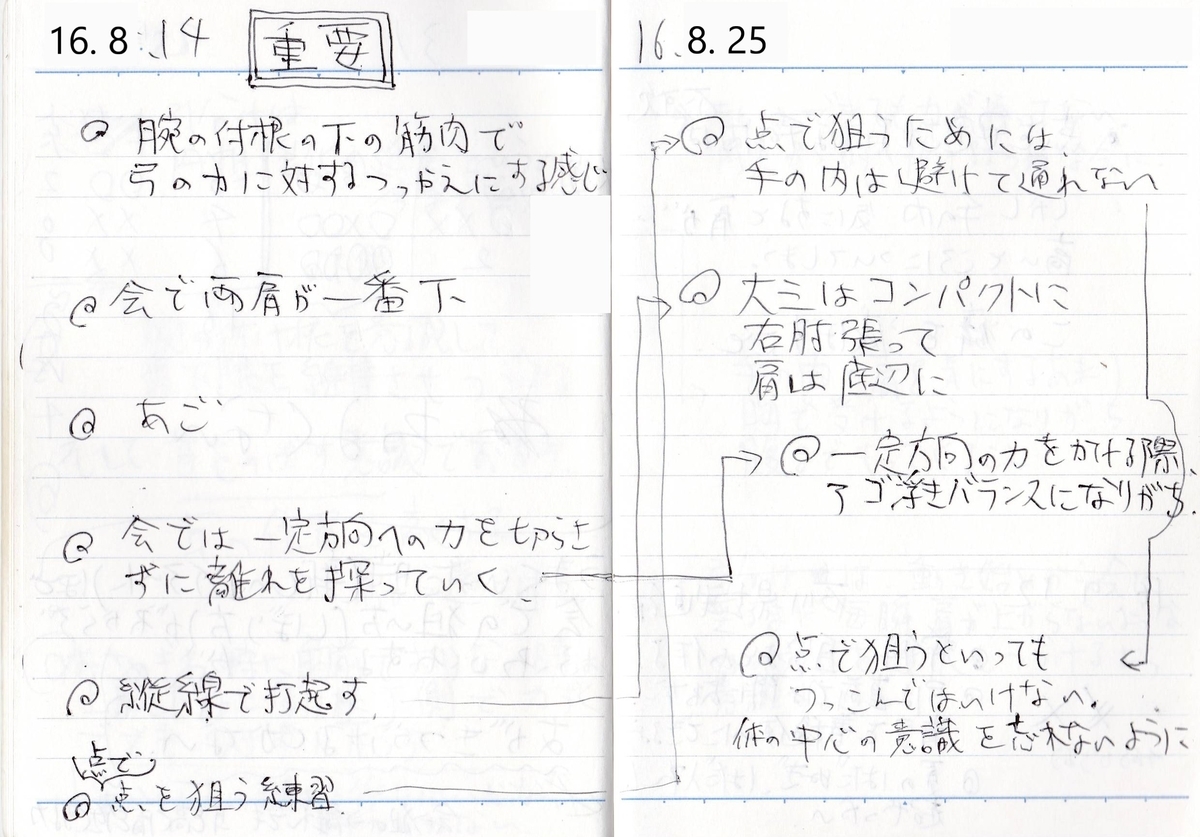 16. 8. 14
重要
腕の付根の下の筋肉で
弓の力に対するつっかえにする感じ
会で両肩が一番下
あご
会では一定方向への力を切らさ
ずに離れを探っていく
縦線で打起す
点で
点を狙う練習
16. 8. 25
点で狙うためには、
手の内は避けて通れない
大三はコンパクトに
右肘張って
肩は底辺に
一定方向の力をかける際、
アゴ浮きバランスになりがち.
点で狙うといっても
つっこんではいけない。
体の中心の意識を忘れないように